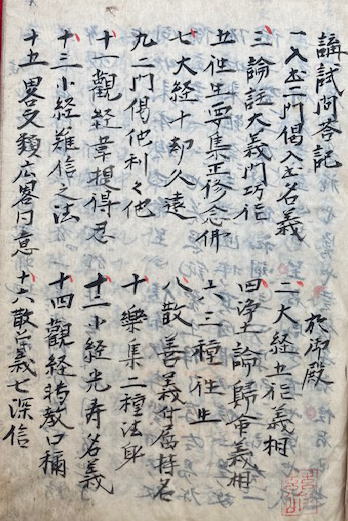 講試問答記
於御殿
一入出二門偈入出名義
二大経五徳義相
三論註大義門功徳
四浄土論歸命義相
五往生要集正修念佛
六三種往生
七大経十劫久遠
八散善義付属持名
九二門偈他利々他
十樂集二種法身
十一觀経韋提得忍
十二小経光寿名義
十三小経難信之法
十四觀経特教口稱
十五畧文類広畧同意
十六散善義七深信